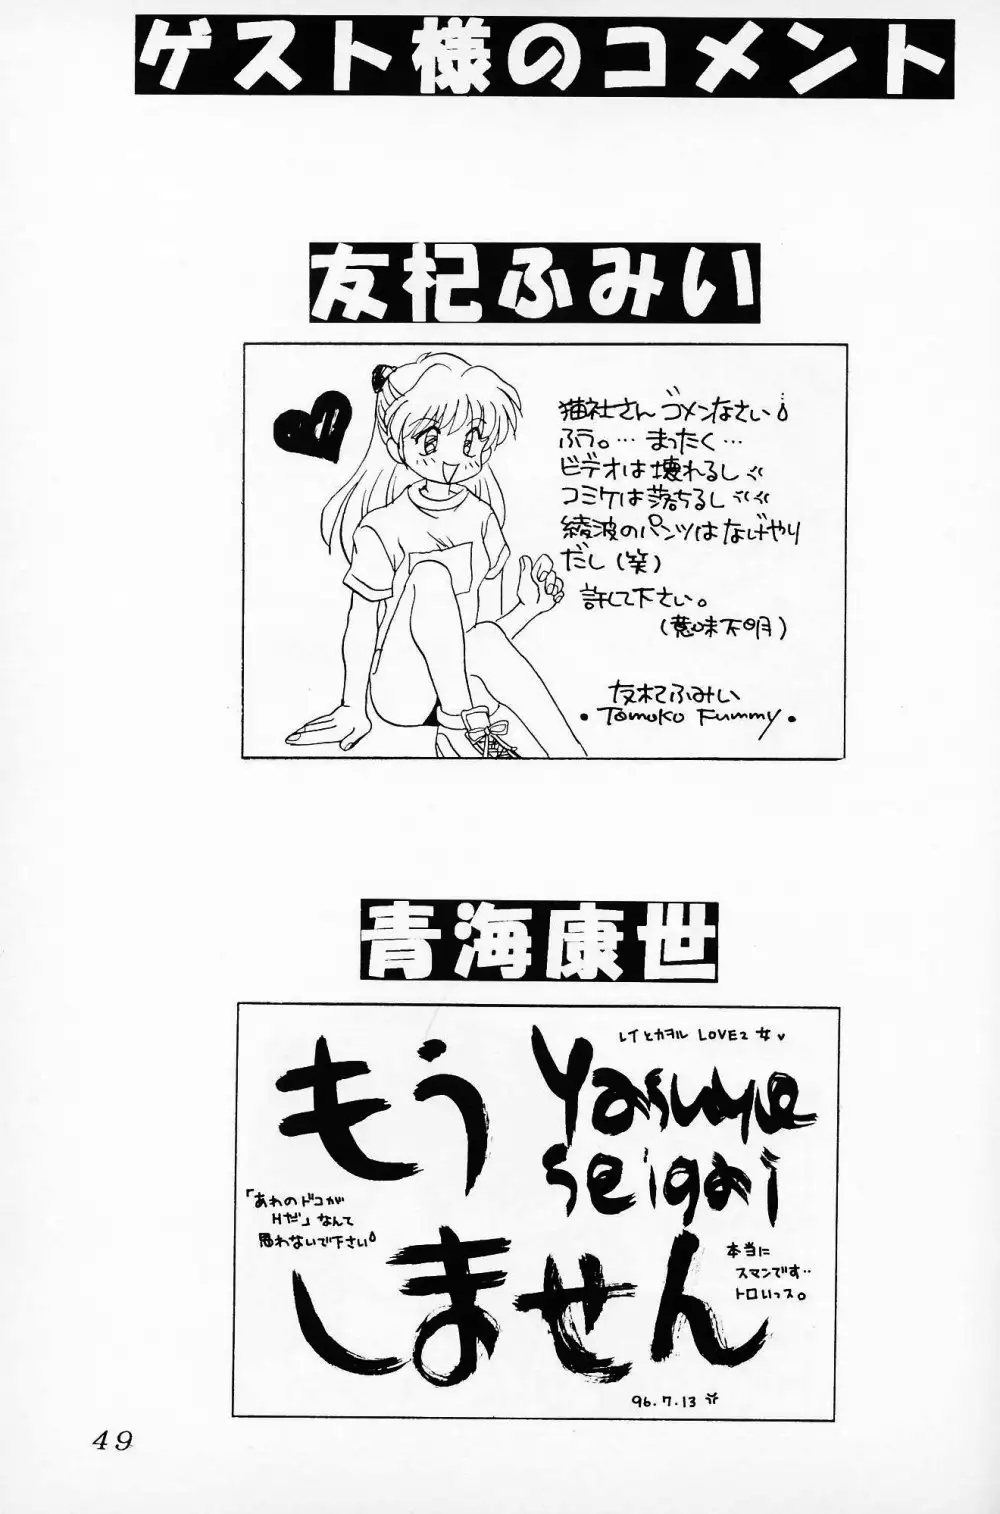 ゲスト様のコメント
友杞ふみい
猫社さん ゴメンなさい
ふう。… まったく…
ビデオは壊れるし
コミケは落ちるし
綾波のパンツはなげやり
だし(笑)
許して下さい。
(意味不明)
友杞ふみい
・Tomoko Fummy・
青海康世
レイとカヲル LOVE2 女
もう
Yasuyo
seigai
「あわのドコが
Hだ」なんて
思わないで下さい
しません
本当に
スマンです‥
トロいっス。
96.7.13
49